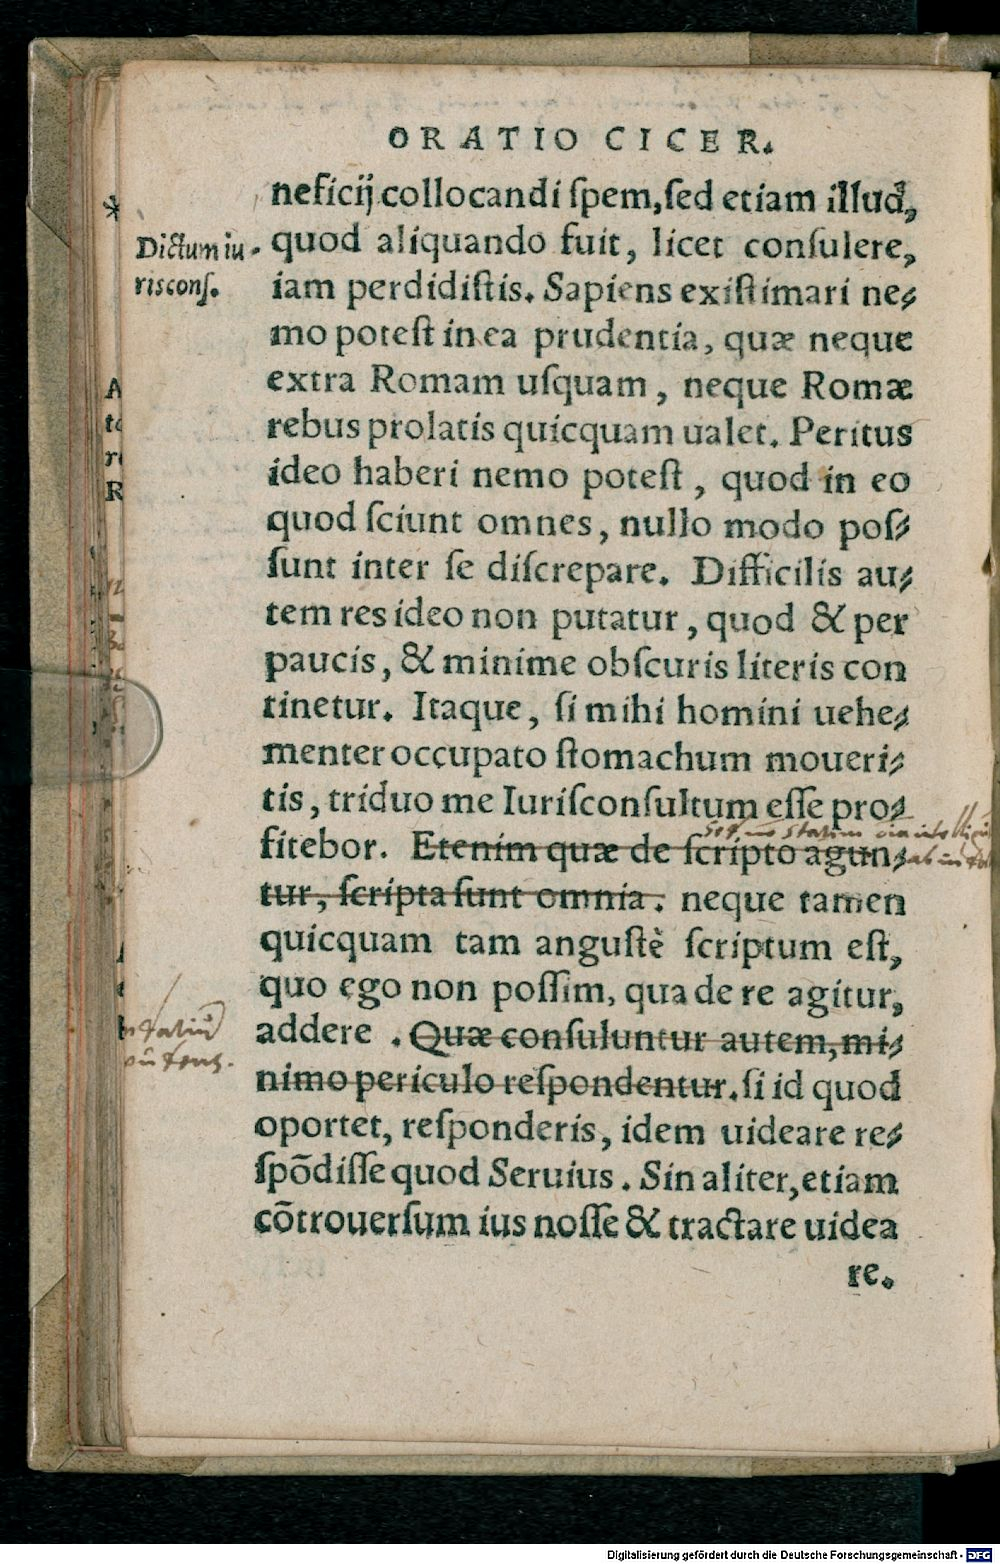 ORATIO CICER.
neficij collocandi ſpem, ſed etiam illud,
Dictum iu-
riſconſ.
quod aliquando fuit, licet conſulere,
iam perdidiſtis. Sapiens exiſtimari ne-
mo poteſt in ea prudentia, quæ neque
extra Romam uſquam, neque Romæ
rebus prolatis quicquam ualet. Peritus
ideo haberi nemo poteſt, quod in eo
quod ſciunt omnes, nullo modo poſ-
ſunt inter ſe diſcrepare. Difficilis au-
tem res ideo non putatur, quod & per
paucis, & minime obſcuris literis con
tinetur. Itaque, ſi mihi homini uehe-
menter occupato ſtomachum moueri-
tis, triduo me Iuriſconſultum eſſe pro-
fitebor. Etenim quæ de ſcripto agun-
tur, ſcripta ſunt omnia. neque tamen
quicquam tam anguſtè ſcriptum eſt,
quo ego non poſſim, qua de re agitur,
addere. Quæ conſuluntur autem, mi-
nimo periculo reſpondentur. ſi id quod
oportet, reſponderis, idem uideare re-
ſpõdiſſe quod Seruius. Sin aliter, etiam
cõtrouerſum ius noſſe & tractare uidea
re.
Digitalisierung gefördert durch die Deutsche Forschungsgemeinschaft - DFG